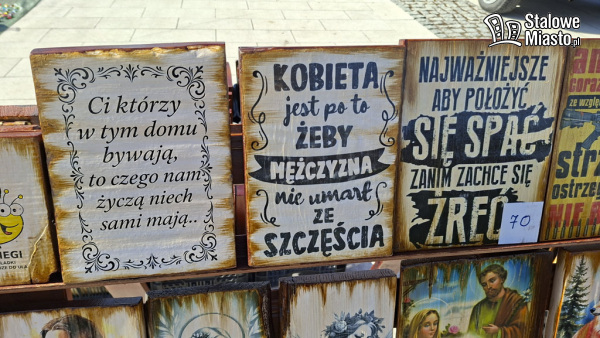 Stalowe
Miasto.pl
Ci którzy
w tym domu
bywają,
to czego nam
życzą niech
sami mają..
KOBIETA
jest po to
ŻEBY
MĘŻCZYZNA
nie umarł
ZE
SZCZĘŚCIA
NAJWAŻNIEJSZE
ABY POŁOŻYĆ
SIĘ SPAĆ
ZANIM ZACHCE SIĘ
ŻREĆ
70
ze wzglę